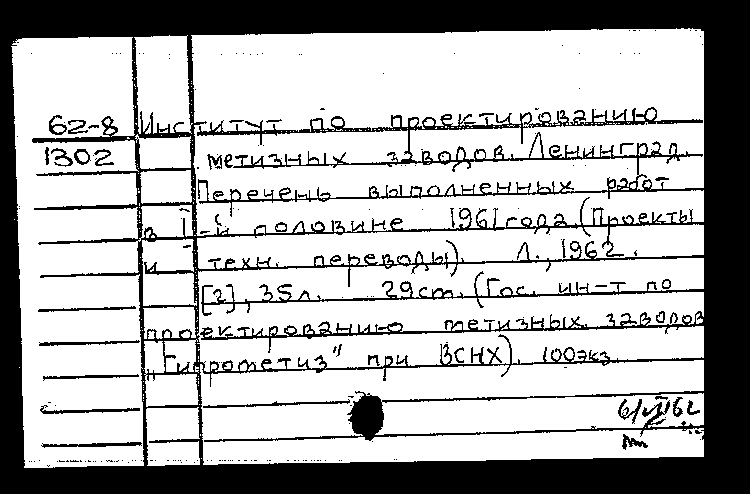 62-8 Институт по проектированию
1302 метизных заводов. Ленинград.
Перечень выполненных работ
в I-й половине 1961 года (Проекты
и техн. переводы). Л., 1962.
[2], 35 л. 29 ст. (Гос. ин-т по
проектированию метизных заводов
„Гипрометиз" при ВСНХ). 100 экз.